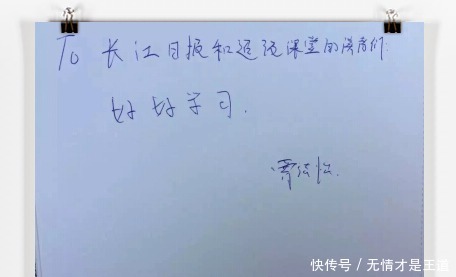 To 长江日报和逗逗课堂的读者们:
好好学习.
快传号/无情才是王道